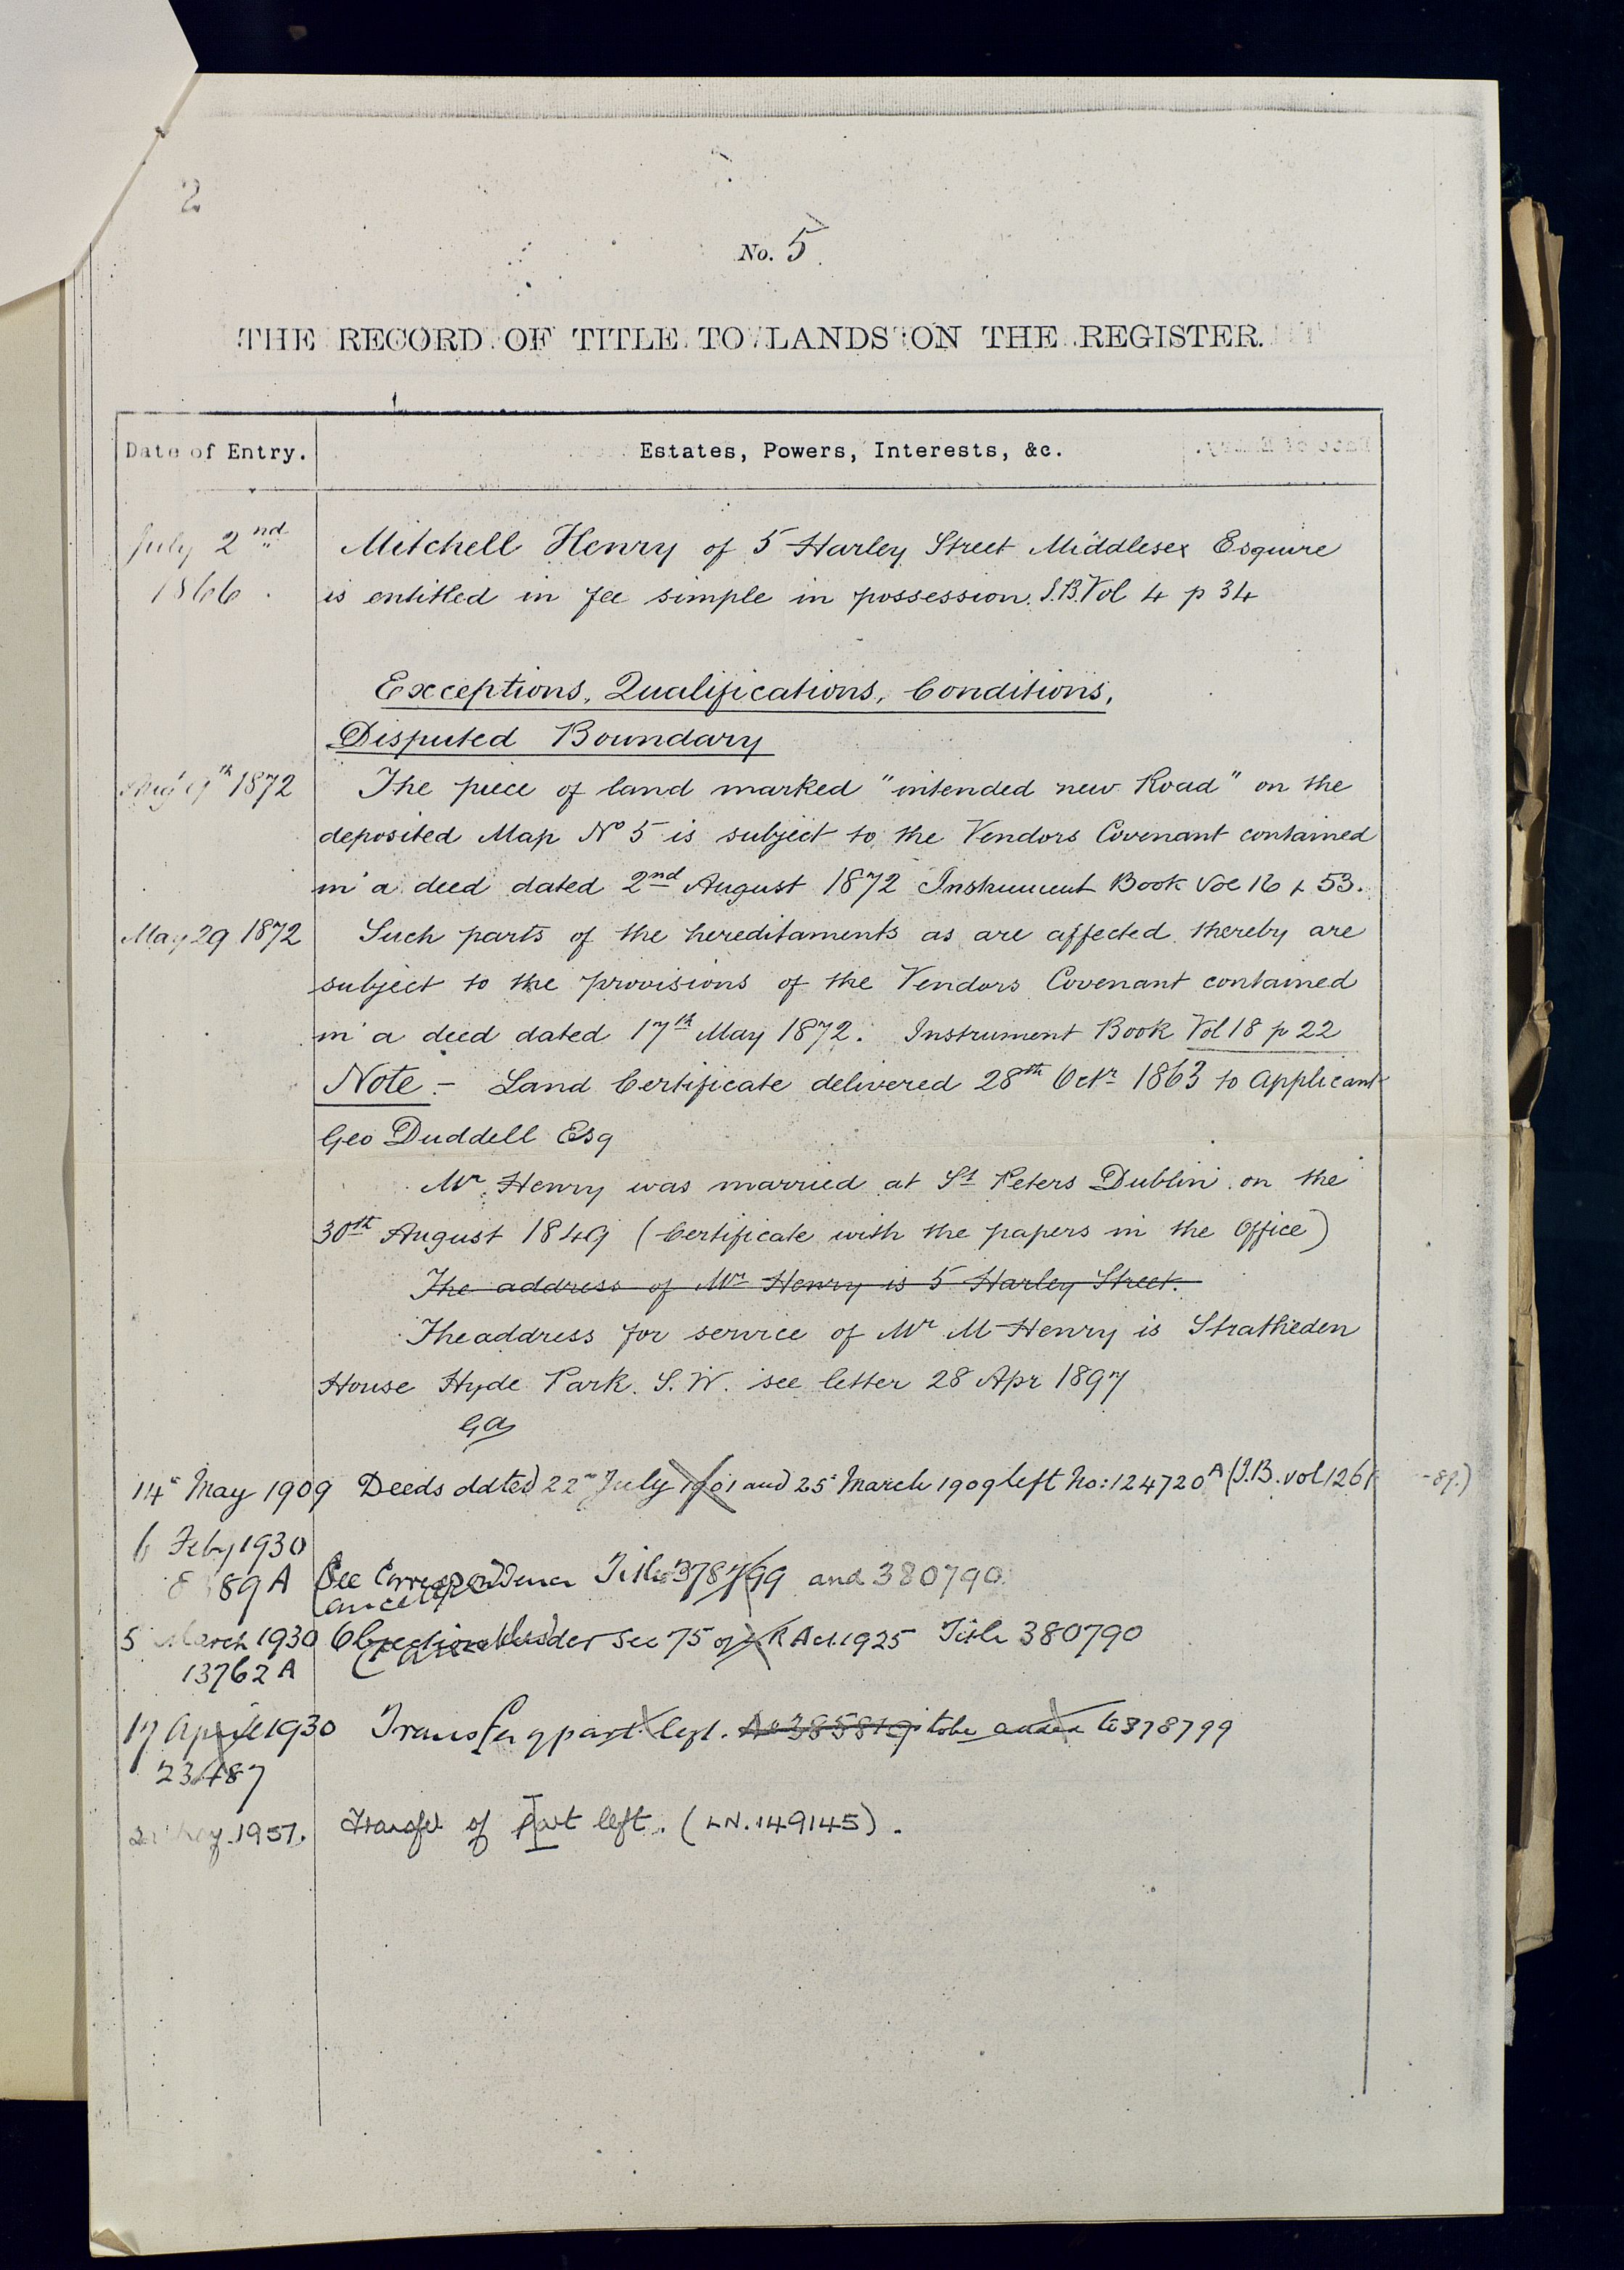 2
No. 5
THE RECORD OF TITLE TO LANDS ON THE REGISTER.
Date of Entry.
Estates, Powers, Interests, &c.
July 2nd
1866.
Mitchell Henry of 5 Harley Street Middlesex Esquire
is entitled in fee simple in possession. I.B. Vol 4 p 34
Exceptions, Qualifications, Conditions,
Disputed Boundary
1872
The piece of land marked "intended new Road" on the
deposited Map No 5 is subject to the Vendors Covenant contained
in a deed dated 2nd August 1872 Instrument Book Vol 16 53.
May 29 1872
Such parts of the hereditaments as are affected thereby are
subject to the provisions of the Vendors Covenant contained
in a deed dated 17th May 1872. Instrument Book Vol 18 p 22
Note - Land Certificate delivered 28th Octr 1863 to Applicant
Geo Duddell Esq
Mr. Henry was married at St Peters Dublin on the
30th August 1849 (Certificate with the papers in the Office)
The address of Mr Henry is 5 Harley Street.
The address for service of Mr M Henry is Stratheden
House Hyde Park. S.W. see letter 28 Apr 1897
14th May 1909
Deeds ddted 22nd July 1901 and 25th March 1909 left No: 124720A (I.B. vol 126
-89.)
6 Feby 1930
89 A
See Correspondence Title 378799 and 380790
5 March 1930
Under Sec 75 of L R Act 1925 Title 380790
13762 A
17 April 1930
Transfer of part left. to be 378799
23487
1957.
Transfer of Part left. (LN.149145).